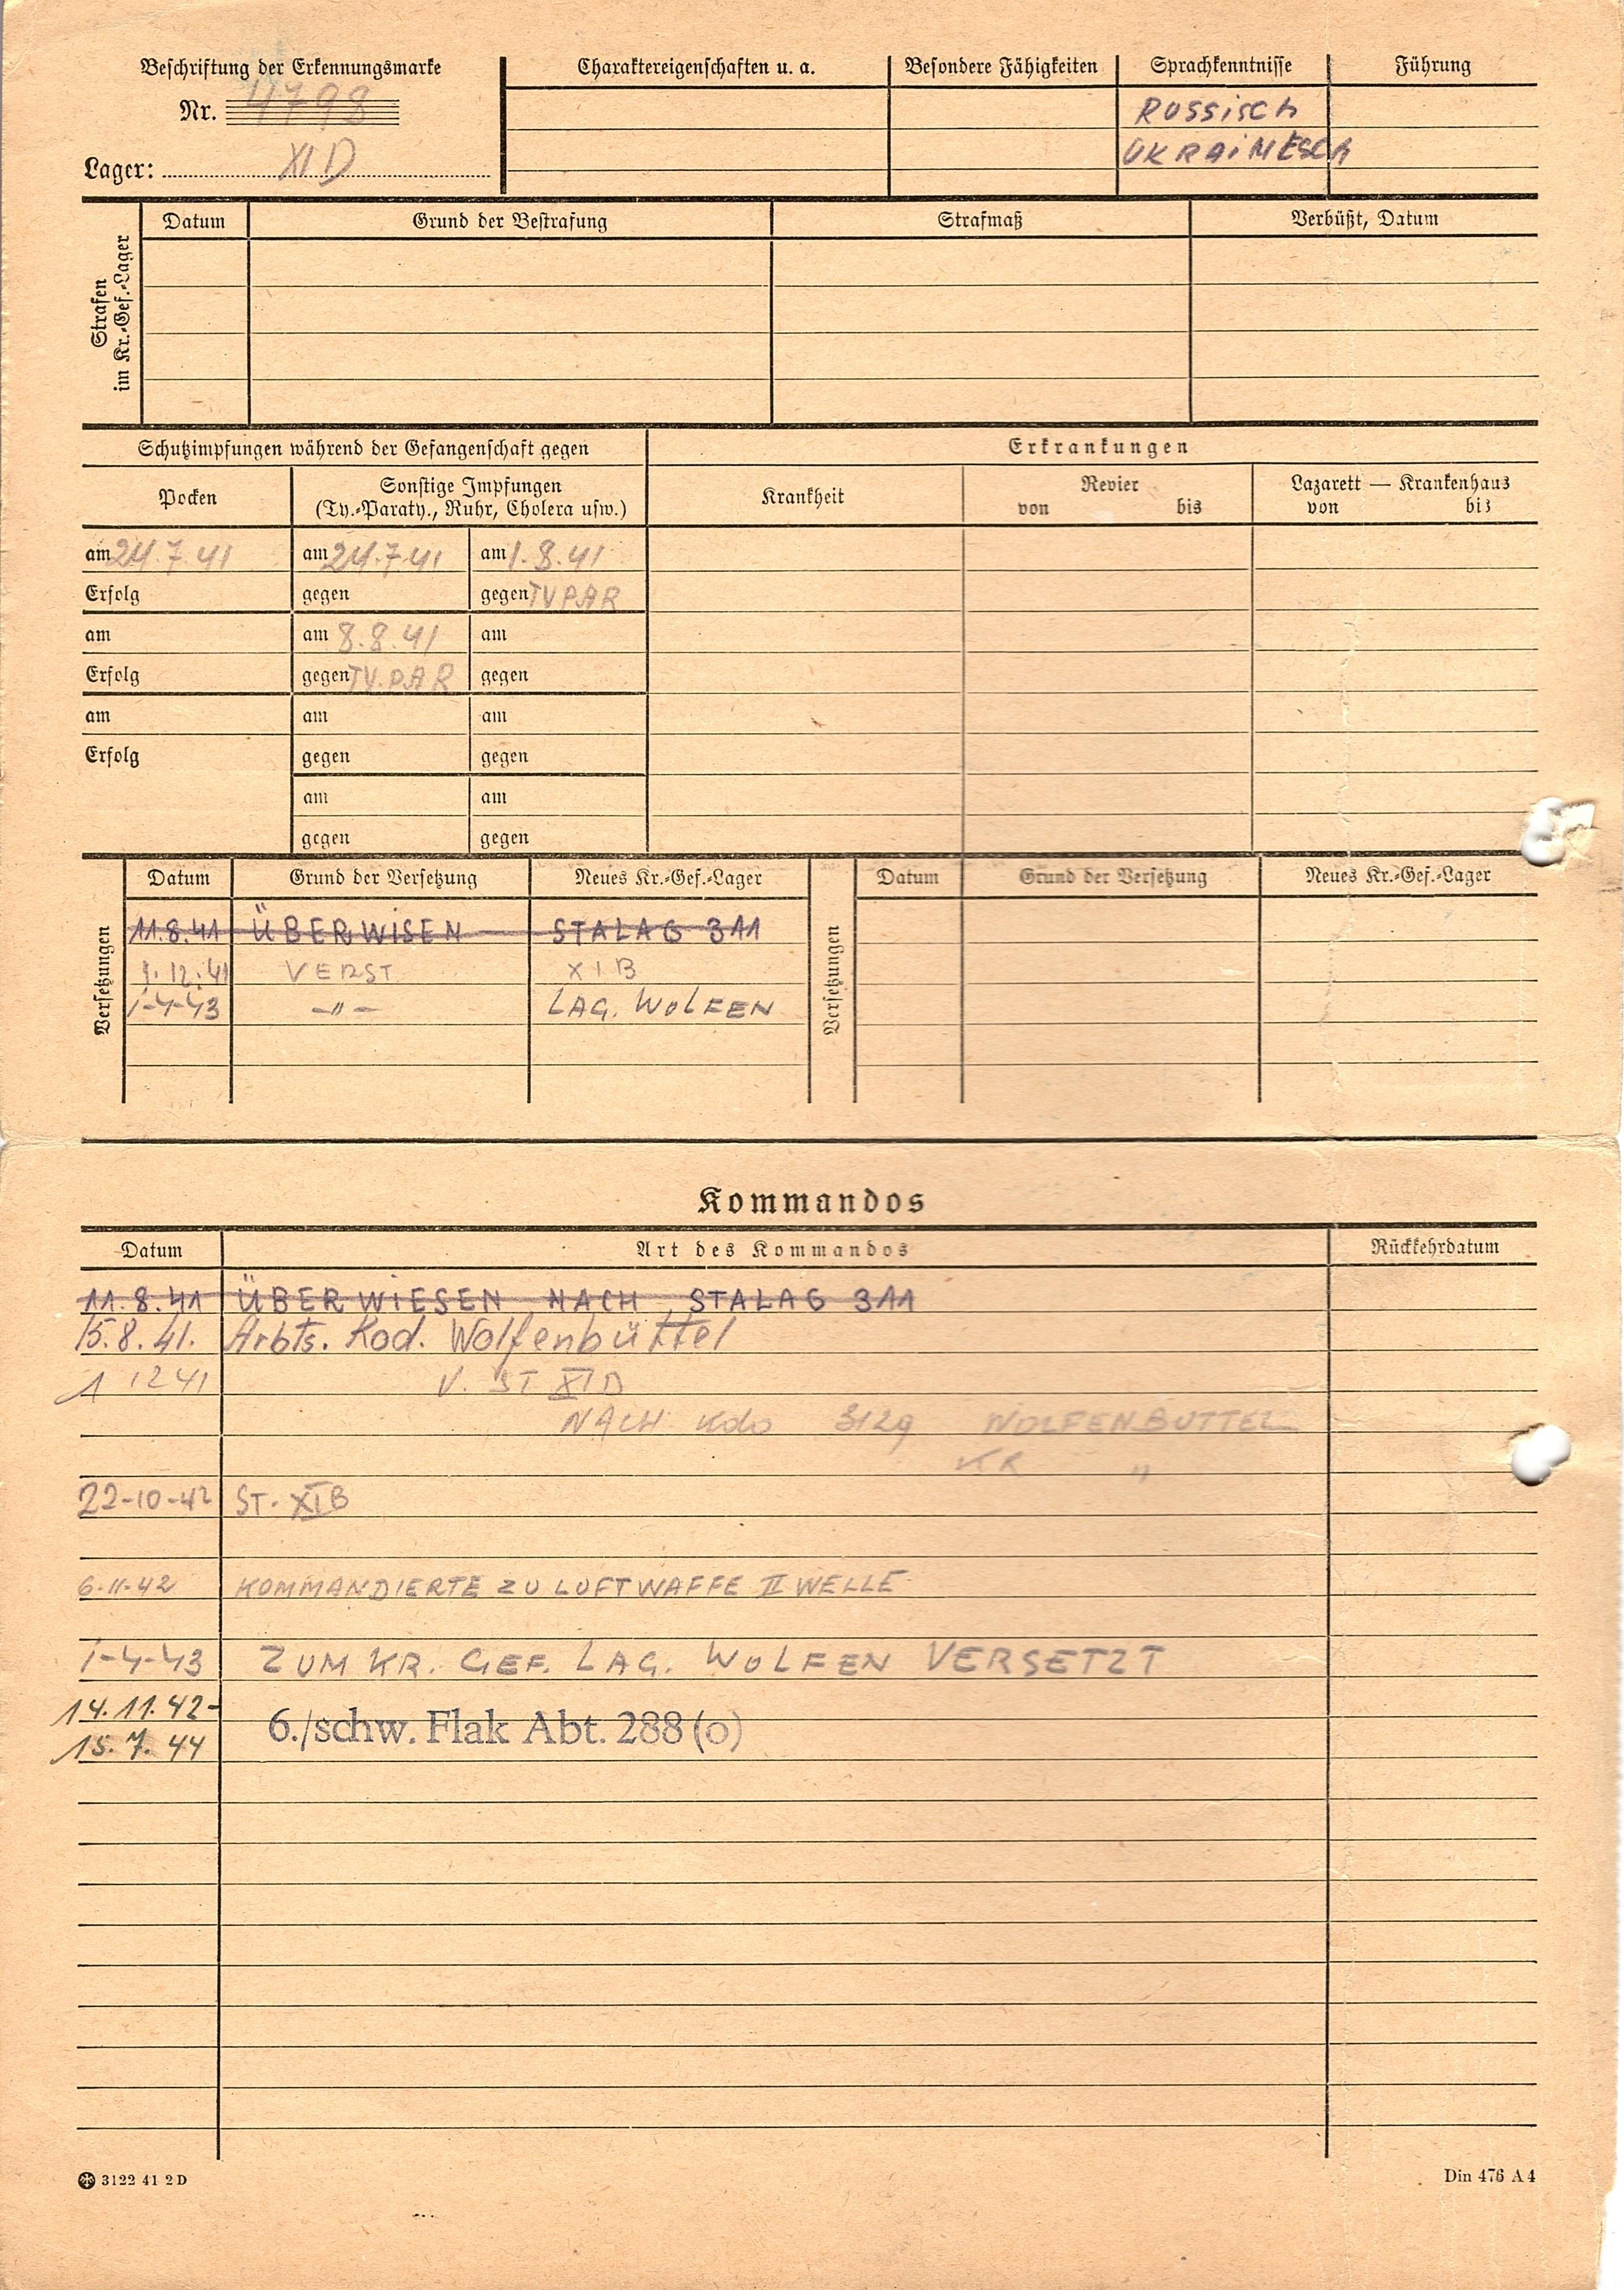 Beschriftung der Erkennungsmarke
Nr. 4798
Lager: XI D
Charaktereigenschaften u. a.
Besondere Fähigkeiten
Sprachkenntnisse
Führung
RUSSISCH
UKRAINESCH
Strafen
im Kr.-Gef.-Lager
Datum
Grund der Bestrafung
Strafmaß
Verbüßt, Datum
Schutzimpfungen während der Gefangenschaft gegen
Pocken
Sonstige Impfungen
(Ty.-Paraty., Ruhr, Cholera usw.)
am 24.7.41
am 24.7.41
am 1.8.41
Erfolg
gegen
gegen TYPAR
am
am 8.8.41
am
Erfolg
gegen TY.PAR
gegen
am
am
am
Erfolg
gegen
gegen
am
am
gegen
gegen
Erkrankungen
Krankheit
Revier
von bis
Lazarett — Krankenhaus
von bis
Versetzungen
Datum
Grund der Versetzung
Neues Kr.-Gef.-Lager
11.8.41 ÜBERWISEN STALAG 311
1.12.41 VERST XIB
1-4-43 -"- LAG. WOLFEN
Versetzungen
Datum
Grund der Versetzung
Neues Kr.-Gef.-Lager
Kommandos
Datum
Art des Kommandos
Rückkehrdatum
11.8.41 ÜBERWIESEN NACH STALAG 311
15.8.41. Arbts. Kod. Wolfenbüttel
1 12 41 V. ST XI D
NACH Kdo 3129 WOLFENBUTTEL
KR "
22-10-42 ST. XIB
6-11-42 KOMMANDIERTE ZU LUFTWAFFE II WELLE
1-4-43 ZUM KR. GEF. LAG. WOLFEN VERSETZT
14.11.42-
15.7.44
6./schw. Flak Abt. 288 (o)
3122 41 2 D
Din 476 A 4